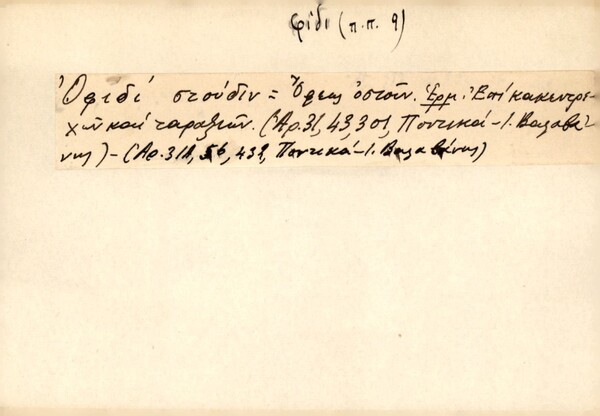 φίδι (π.π. 9)
Ὀφιδί στούδιν = Ὄφεως ὀστοῦν. Ἑρμ. Ἐπί κακεντρε-
χῶν καί ταραξιῶν. (Ἀρ. 31, 43, 301, Ποντικά - Ι. Βαλαβά-
νης) - (Ἀρ. 311, 56, 431, Ποντικά - Ι. Βαλαβάνης)